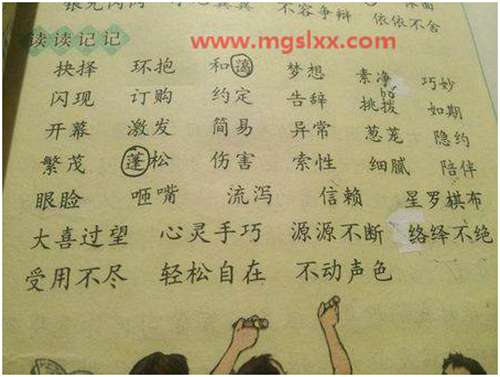 不容争辩
依依不舍
www.mgslxx.com
读读记记
抉择 环抱 和谐 梦想 素净 巧妙
闪现 订购 约定 告辞 挑拨 如期
开幕 激发 简易 异常 葱茏 隐约
繁茂 蓬松 伤害 索性 细腻 陪伴
眼睑 咂嘴 流泻 信赖 星罗棋布
大喜过望 心灵手巧 源源不断 络绎不绝
受用不尽 轻松自在 不动声色